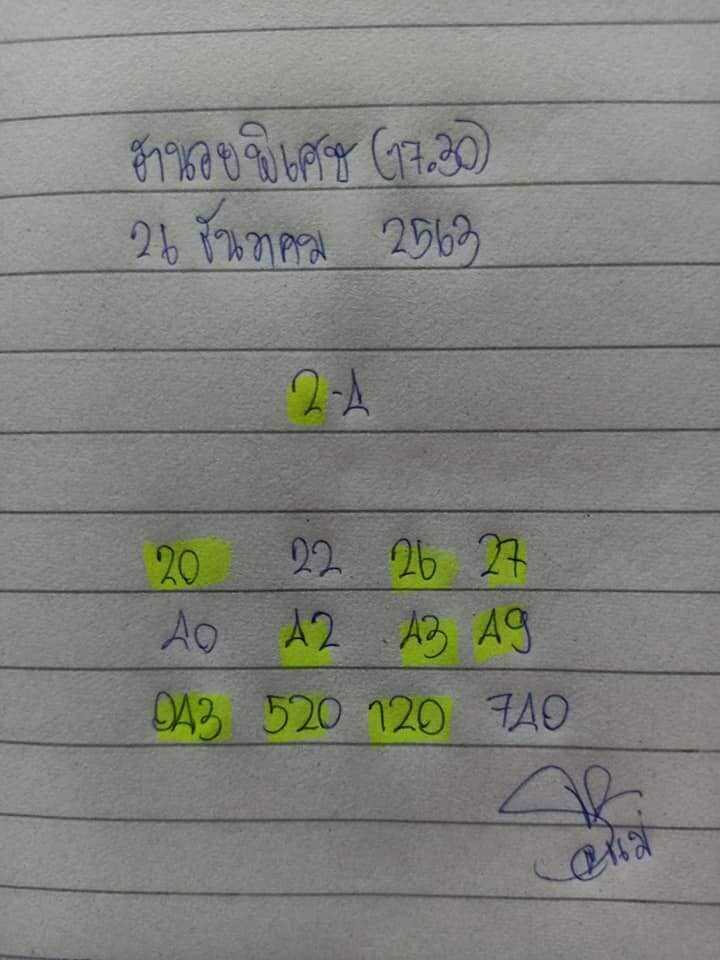 ฮานอยพิเศษ (17.30)
26 ธันวาคม 2563
2-4
20 22 26 27
40 42 43 49
943 520 120 740